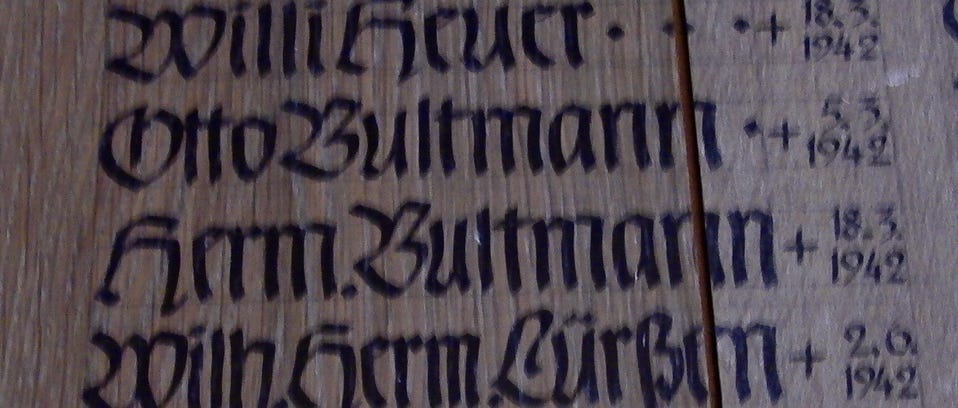 Willi Heuer · · · + 18.3.
1942
Otto Bultmann · + 5.3.
1942
Herm. Bultmann + 18.3.
1942
Wilh. Herm. Lürßen + 2.6.
1942